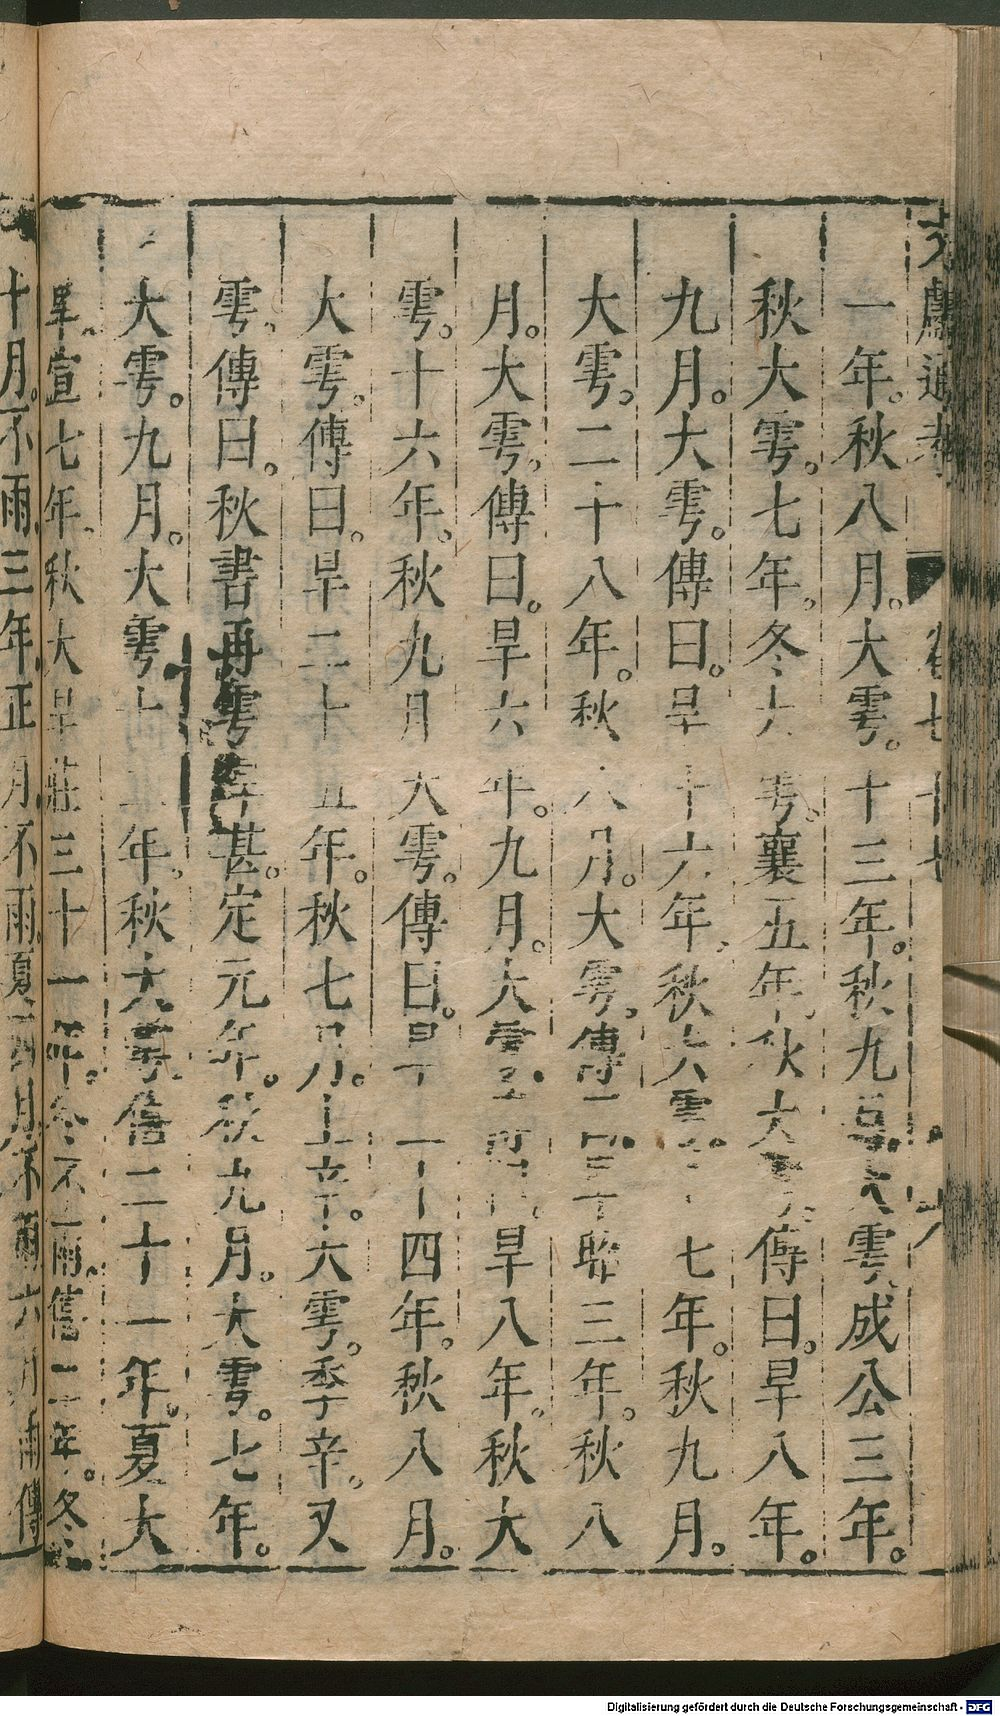 文獻通考 卷七十七
一年。秋八月。大雩。十三年。秋九月。大雩。成公三年。
秋大雩。七年。冬大雩。襄五年。秋大雩。傳曰。旱八年。
九月。大雩。傳曰。旱十六年。秋大雩。十七年。秋九月。
大雩。二十八年。秋八月。大雩。傳曰 昭三年。秋八
月。大雩。傳曰。旱六年。九月。大雩。旱八年。秋大
雩。十六年。秋九月大雩。傳曰。旱二十四年。秋八月。
大雩。傳曰。旱二十五年。秋七月。上辛。大雩。季辛。又
雩。傳曰。秋書再雩旱甚。定元年。秋九月。大雩。七年。
大雩。九月。大雩十二年。秋大雩。僖二十一年。夏大
旱。宣七年。秋大旱莊三十一年。冬不雨僖二年。冬
十月。不雨三年。正月不雨。夏四月不雨六月雨傳
Digitalisierung gefördert durch die Deutsche Forschungsgemeinschaft - DFG